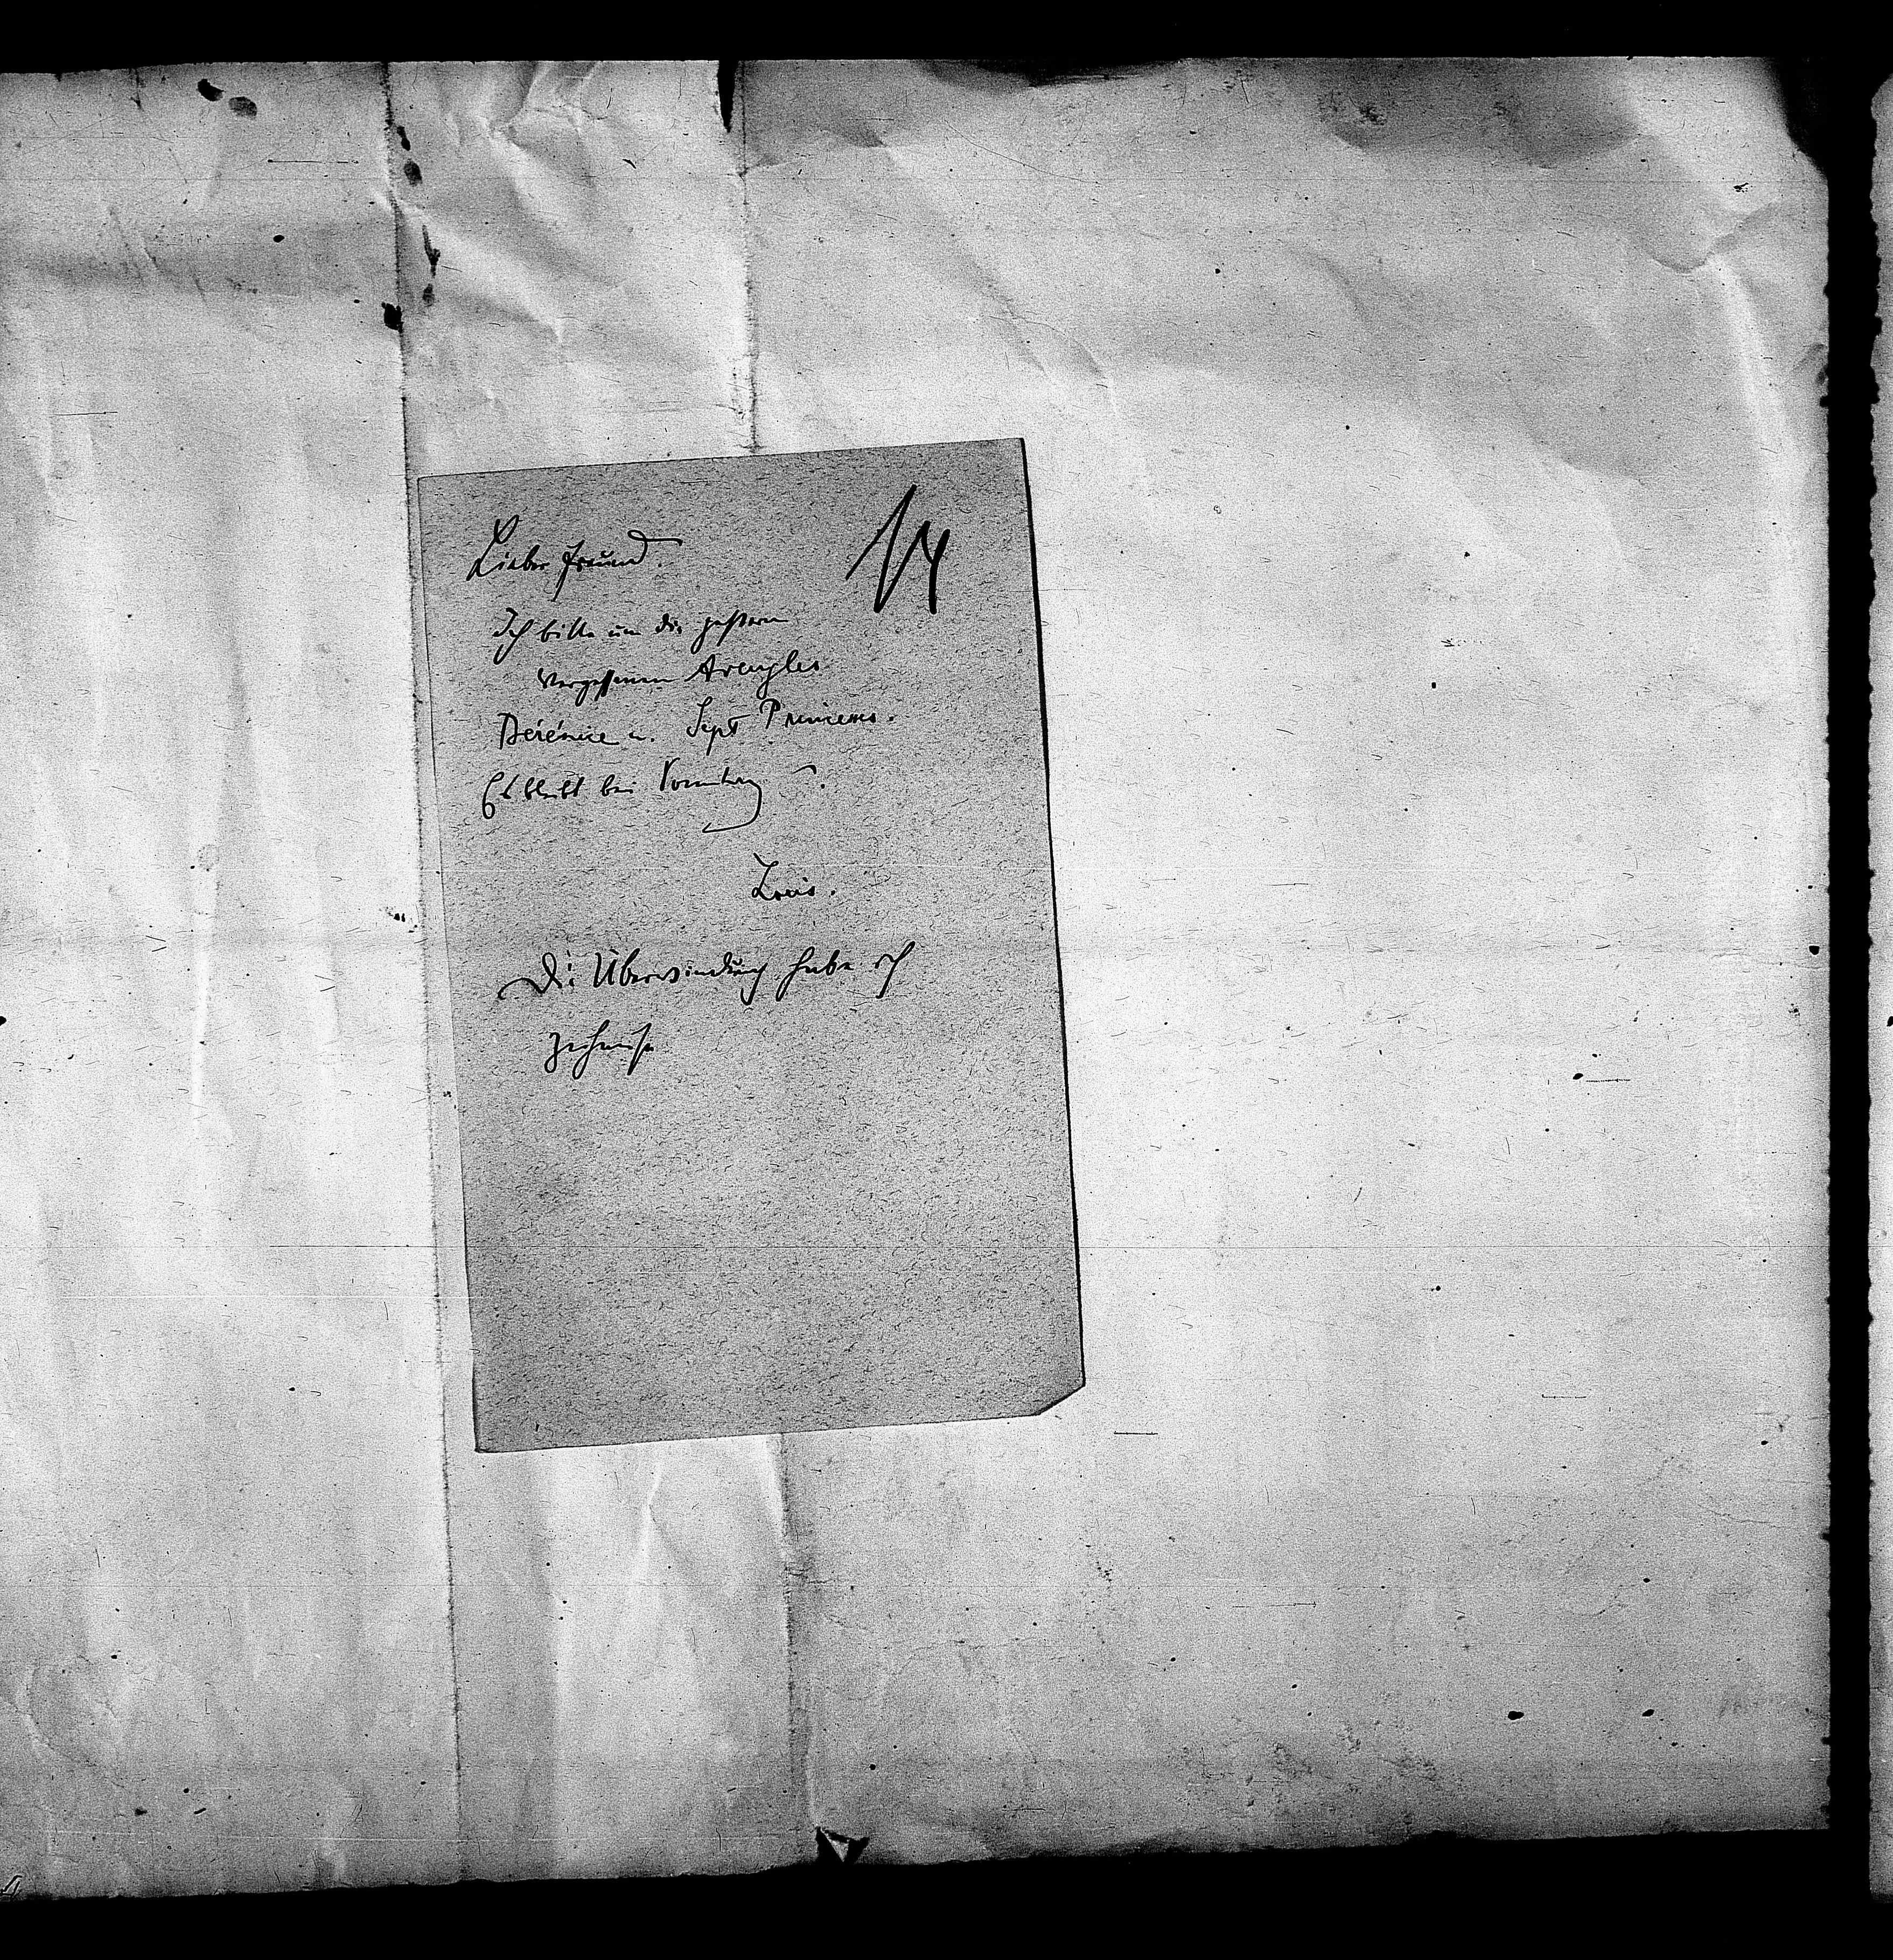 14
Lieber Freund.
Ich bitte um die gestern
vergessenen Aveugles
Bérénice u. Sept Princesses.
Es bleibt bei Sonntag
Loris.
Die Überwindung habe ich
zuhause